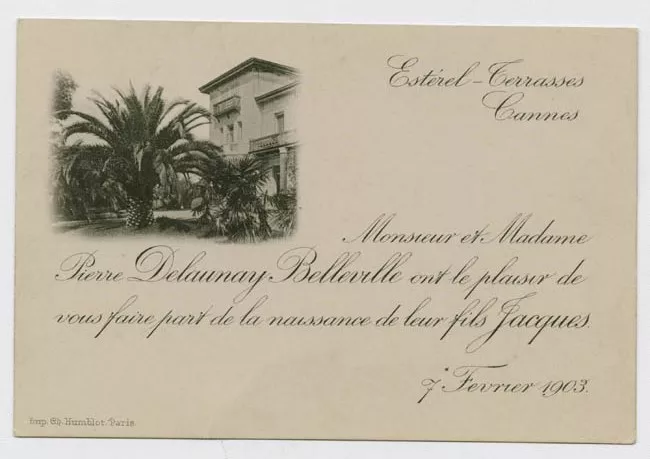 Estérel-Terrasses
Cannes
Monsieur et Madame
Pierre Delaunay Belleville ont le plaisir de
vous faire part de la naissance de leur fils Jacques.
7 Fevrier 1903.
Imp. Ch. Humblot. Paris.